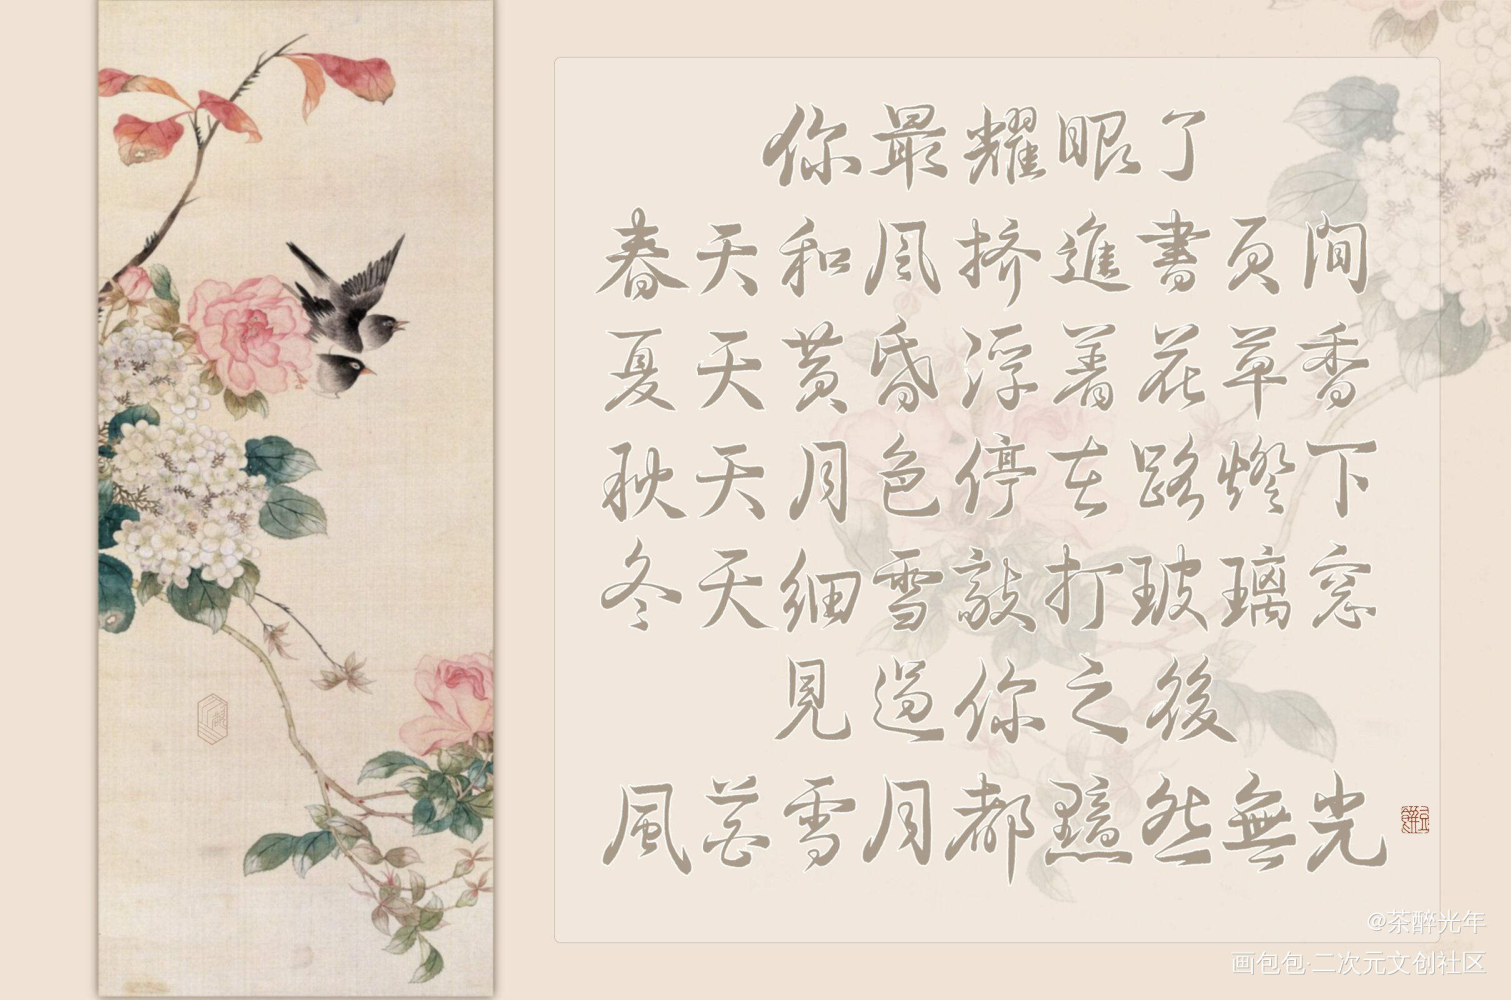 你最耀眼了
春天和风挤進書页间
夏天黄昏浮着花草香
秋天月色停在路燈下
冬天细雪敲打玻璃窓
見過你之後
風花雪月都黯然無光
@茶醉光年
画包包·二次元文创社区